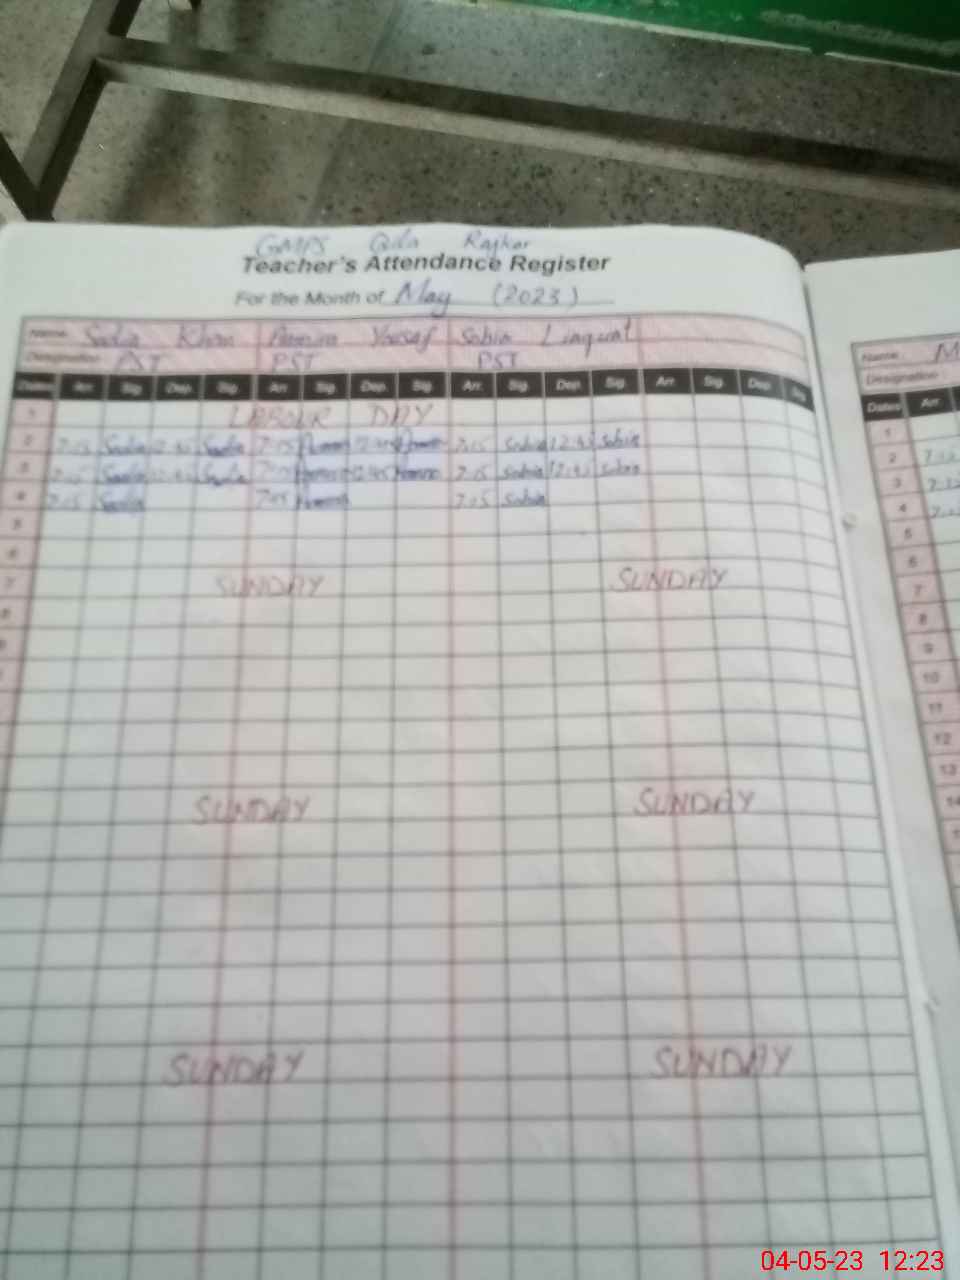 GMPS Qila Rajkor
Teacher's Attendance Register
For the Month of May (2023)
Name Sadia Khan Yousaf Sobia Liaquat
Designation PST PST PST
Dates Arr. Sig. Dep. Sig. Arr. Sig. Dep. Sig. Arr. Sig. Dep. Sig. Arr. Sig. Dep. Sig.
1 LABOUR DAY
2 7:15 Sadia 12:45 Sadia 7:15 12:45 7:15 Sobia 12:45 Sobia
3 7:15 Sadia 12:45 Sadia 7:15 12:45 7:15 Sobia 12:45 Sobia
4 7:15 Sadia 7:15 7:15 Sobia
5
6
7 SUNDAY SUNDAY
8
SUNDAY SUNDAY
SUNDAY SUNDAY
Name: M
Designation:
Dates Arr.
1
2 7:15
3 7:15
4
5
6
7
8
9
10
11
12
13
14
04-05-23 12:23